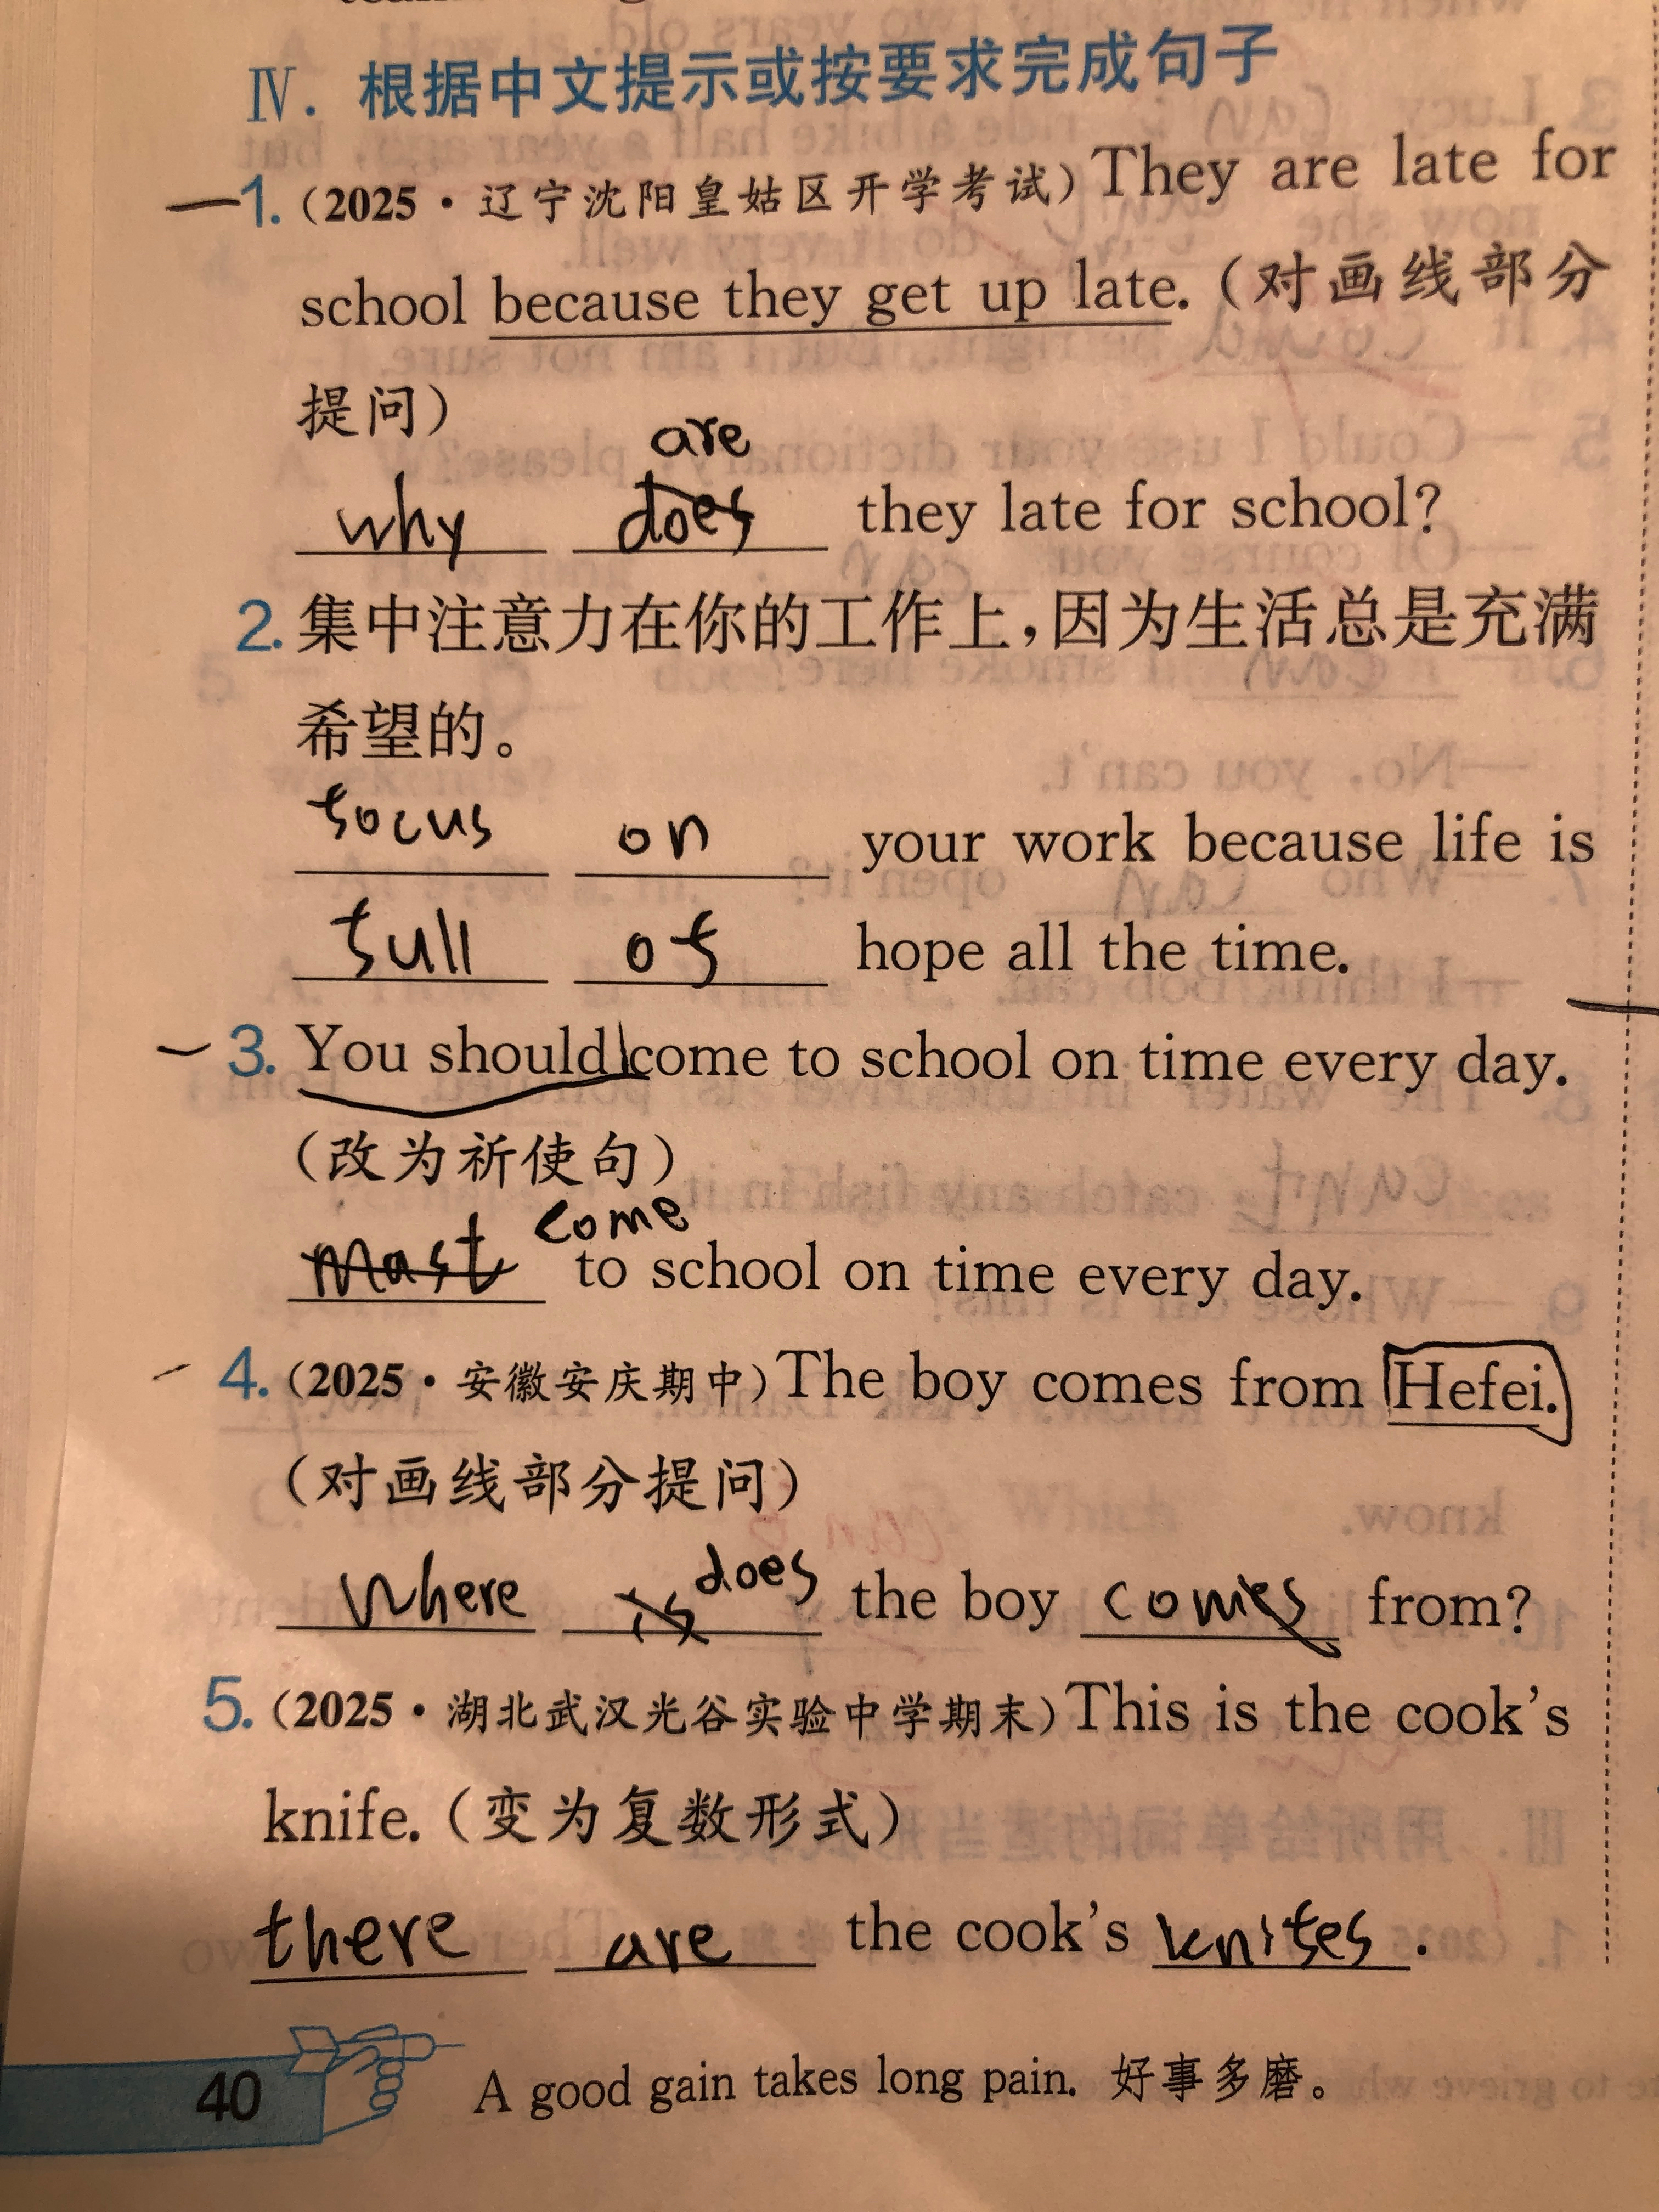 Ⅳ. 根据中文提示或按要求完成句子
1.(2025·辽宁沈阳皇姑区开学考试)They are late for
school because they get up late.(对画线部分
提问)
are
why does they late for school?
2.集中注意力在你的工作上,因为生活总是充满
希望的。
focus on your work because life is
full of hope all the time.
3. You should come to school on time every day.
(改为祈使句)
come
mast to school on time every day.
4.(2025·安徽安庆期中)The boy comes from Hefei.
(对画线部分提问)
does
Where is the boy comes from?
5.(2025·湖北武汉光谷实验中学期末)This is the cook's
knife.(变为复数形式)
there are the cook's knifes .
40 A good gain takes long pain. 好事多磨。